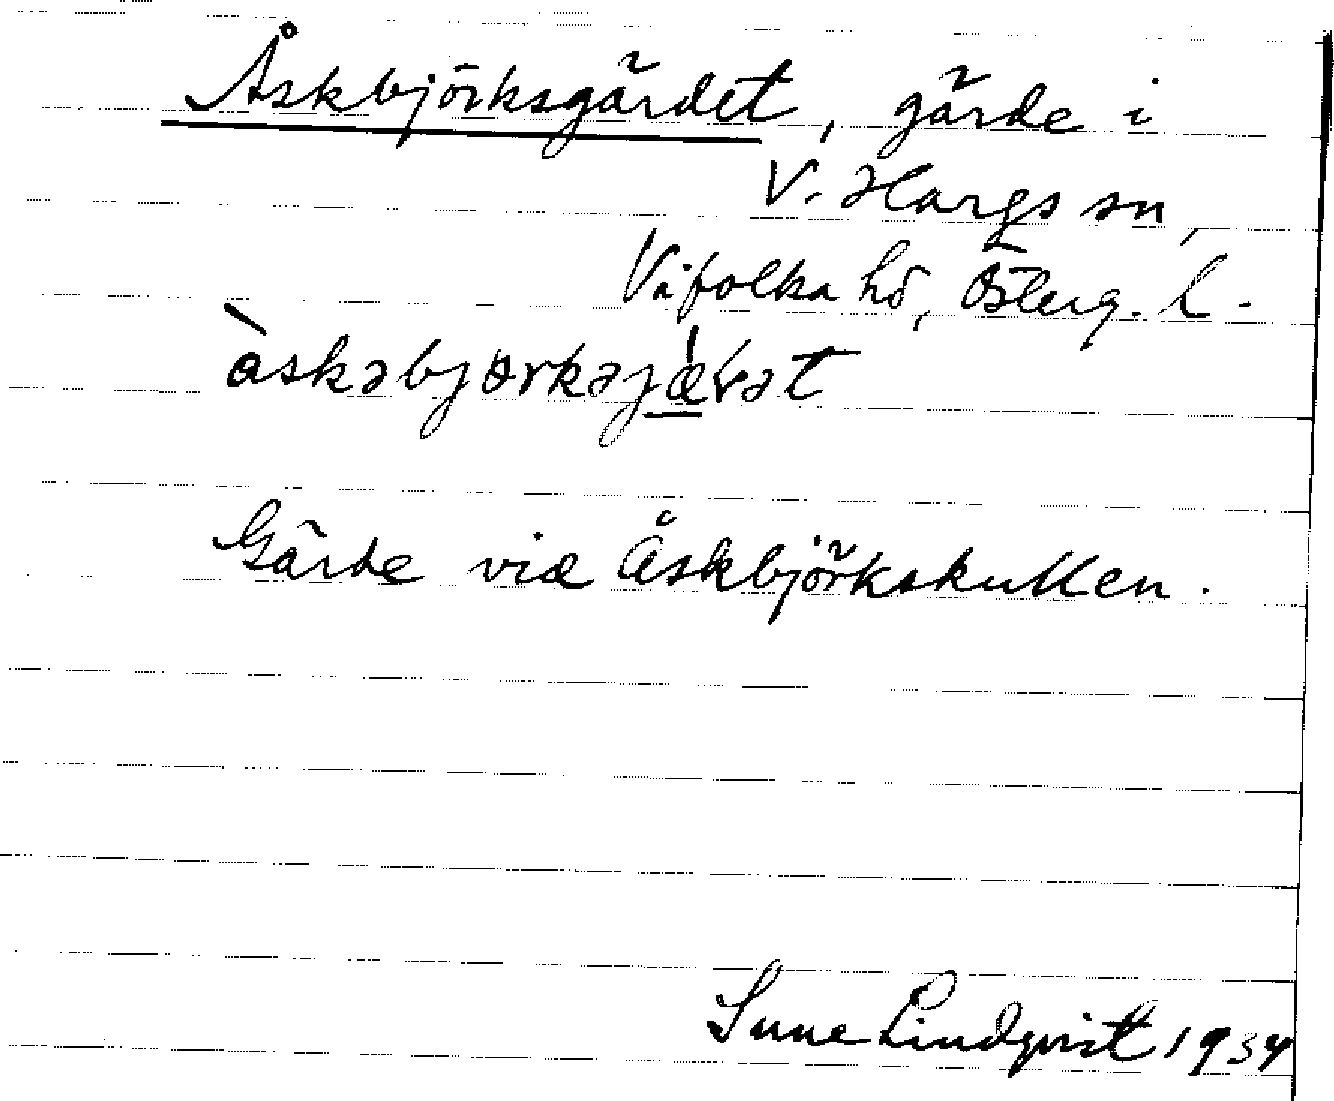 Åskbjörksgärdet, gärde i
V. Hargs sn,
Vifolka hd, Österg. l.
àskəbjørkəjæ̲̍vət
Gärde vid Åskbjörkskullen.
Sune Lindqvist 1934